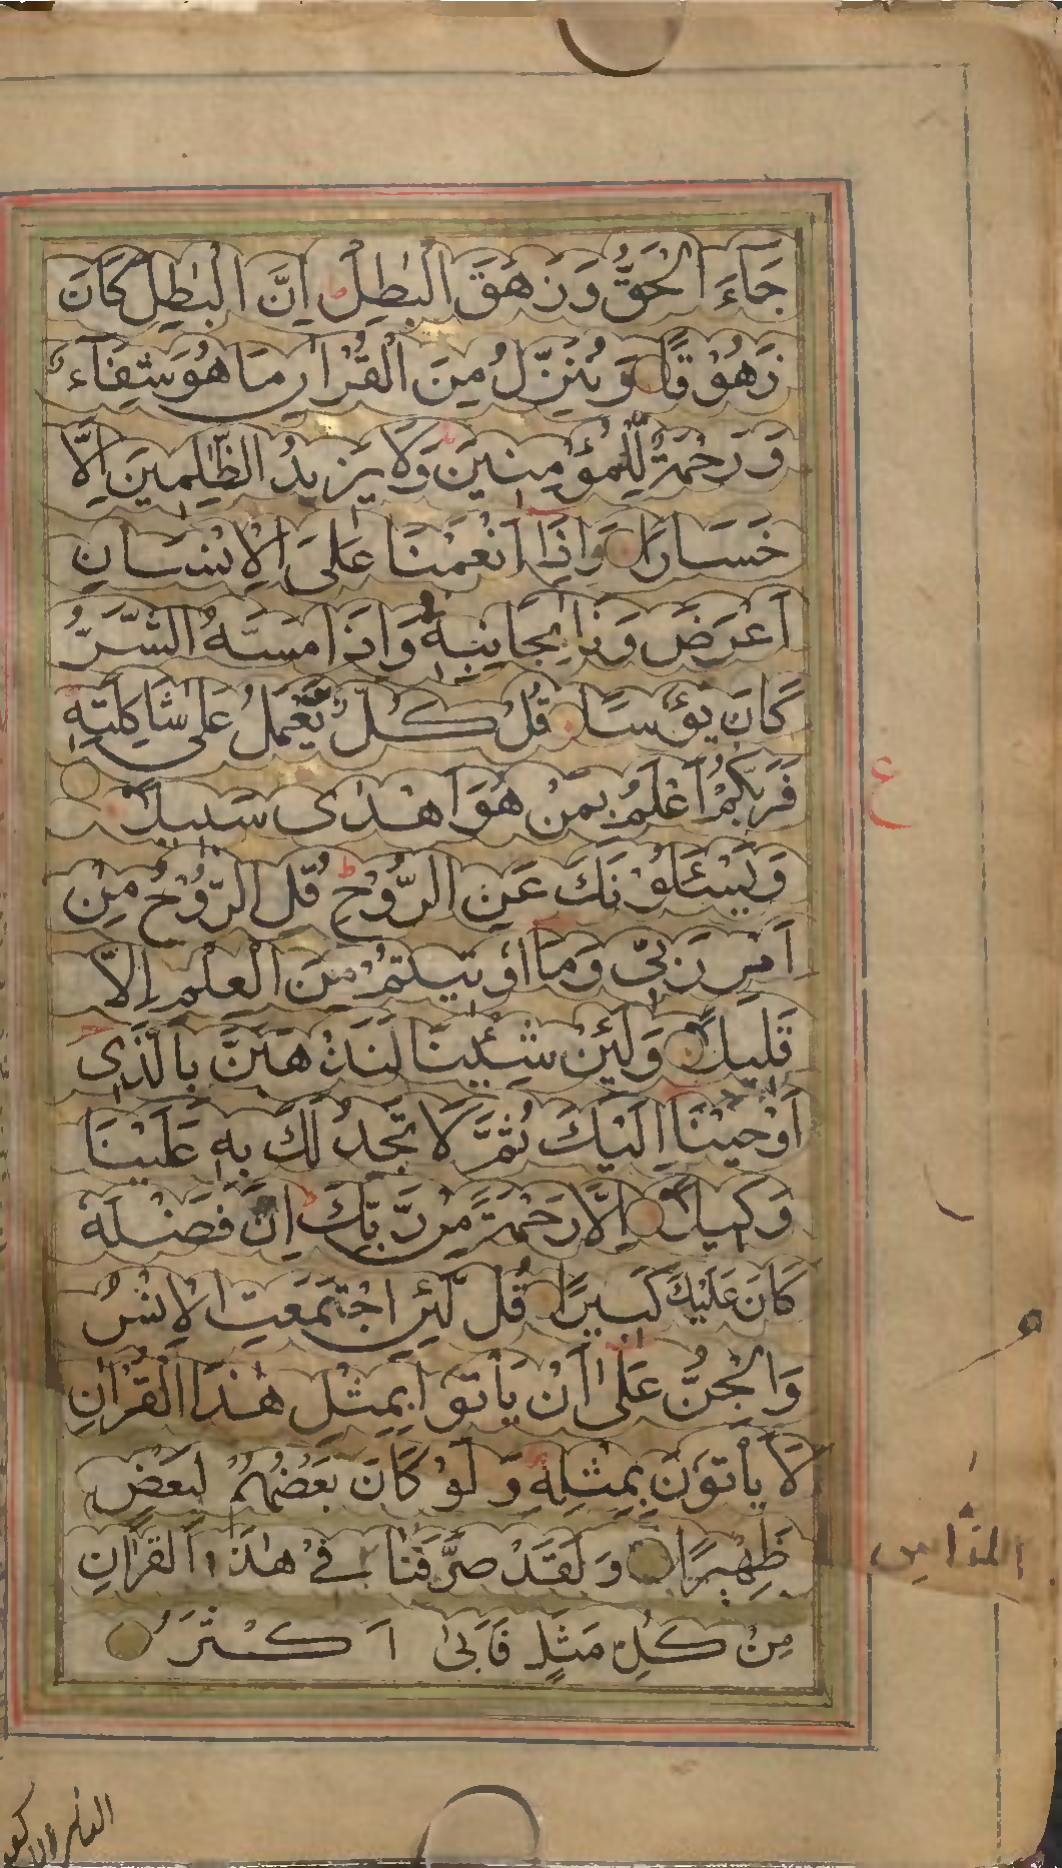 جَاءَ الْحَقُّ وَزَهَقَ الْبٰطِلُ ط اِنَّ الْبٰطِلَ كَانَ
زَهُوْقًا وَنُنَزِّلُ مِنَ الْقُرْاٰنِ مَا هُوَ شِفَآءٌ
وَرَحْمَةٌ لِّلْمُؤْمِنِيْنَ وَلَا يَزِيْدُ الظّٰلِمِيْنَ اِلَّا
خَسَارًا وَاِذَا اَنْعَمْنَا عَلَى الْاِنْسَانِ
اَعْرَضَ وَنَاٰ بِجَانِبِهٖ وَاِذَا مَسَّهُ الشَّرُّ
كَانَ يَؤُسًا قُلْ كُلٌّ يَّعْمَلُ عَلٰى شَاكِلَتِهٖ
فَرَبُّكُمْ اَعْلَمُ بِمَنْ هُوَ اَهْدٰى سَبِيْلًا
ع
وَيَسْئَلُوْنَكَ عَنِ الرُّوْحِ ط قُلِ الرُّوْحُ مِنْ
اَمْرِ رَبِّىْ وَمَآ اُوْتِيْتُمْ مِنَ الْعِلْمِ اِلَّا
قَلِيْلًا وَلَئِنْ شِئْنَا لَنَذْهَبَنَّ بِالَّذِىْ
اَوْحَيْنَا اِلَيْكَ ثُمَّ لَا تَجِدُ لَكَ بِهٖ عَلَيْنَا
وَكِيْلًا اِلَّا رَحْمَةً مِّنْ رَّبِّكَ ط اِنَّ فَضْلَهٗ
كَانَ عَلَيْكَ كَبِيْرًا قُلْ لَّئِنِ اجْتَمَعَتِ الْاِنْسُ
وَالْجِنُّ عَلٰى اَنْ يَّاْتُوْا بِمِثْلِ هٰذَا الْقُرْاٰنِ
لَا يَاْتُوْنَ بِمِثْلِهٖ وَلَوْ كَانَ بَعْضُهُمْ لِبَعْضٍ
ظَهِيْرًا وَلَقَدْ صَرَّفْنَا فِىْ هٰذَا الْقُرْاٰنِ
مِنْ كُلِّ مَثَلٍ فَاَبٰىٓ اَكْثَرُ